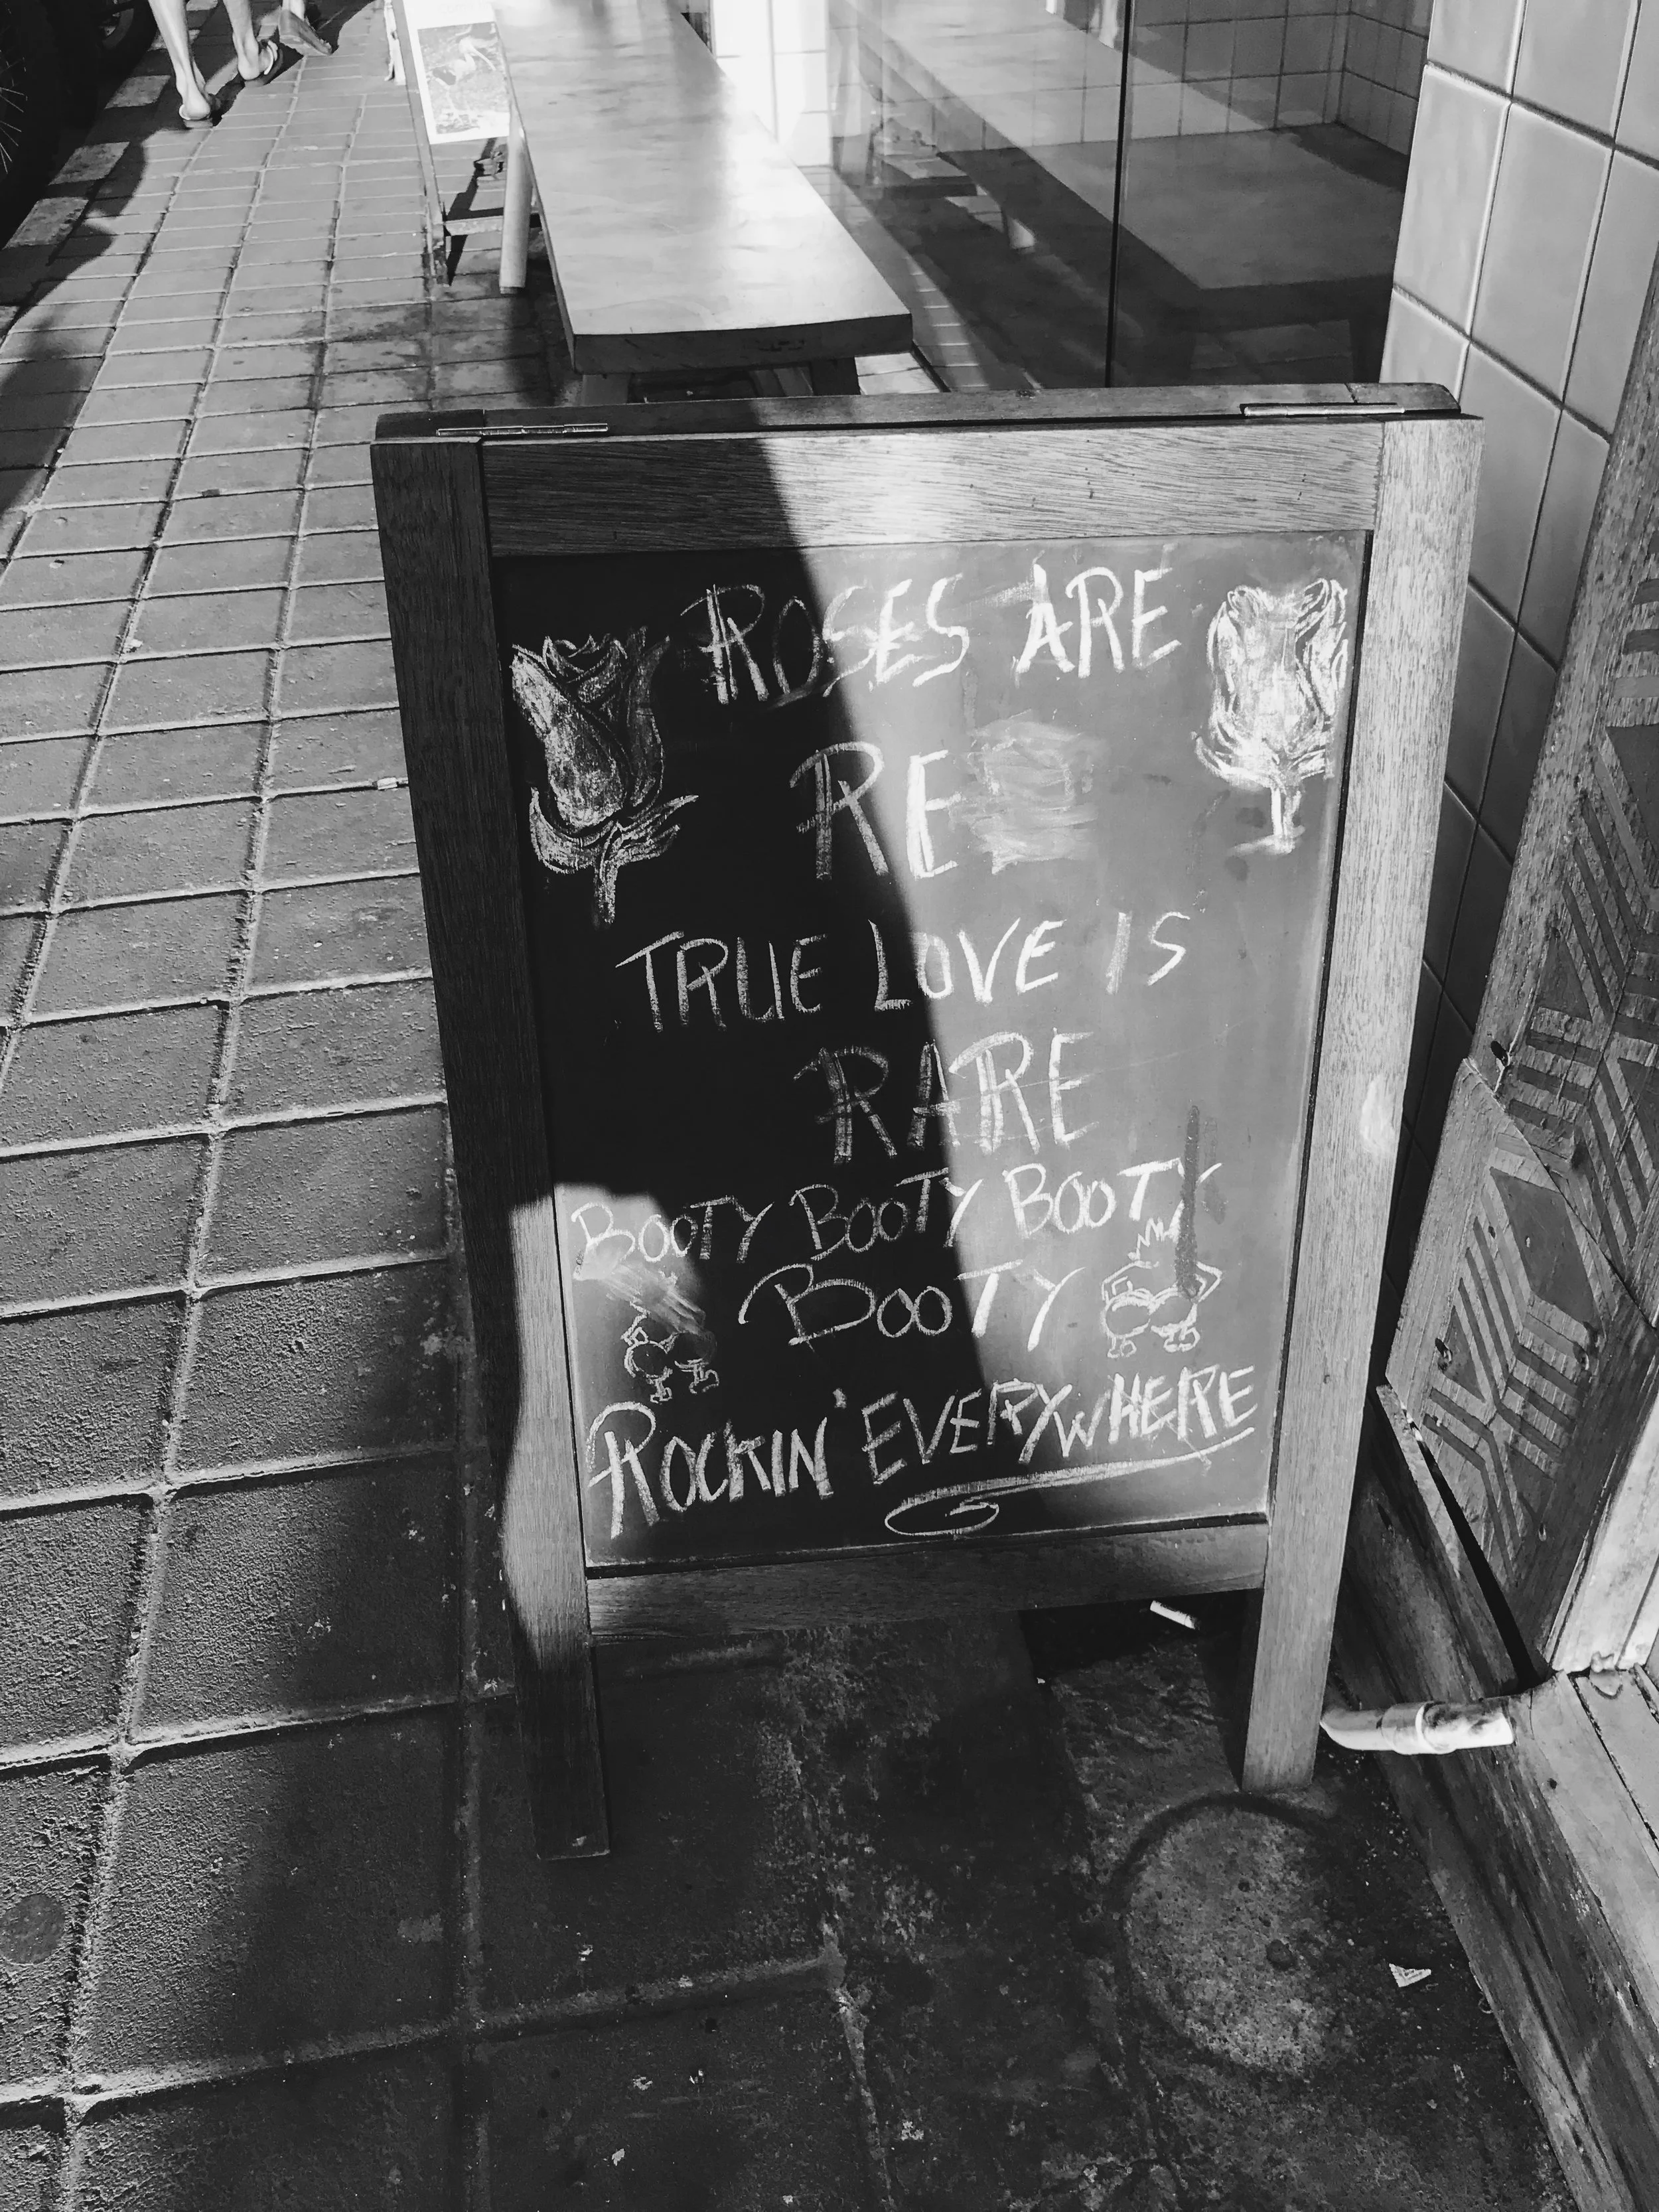 ROSES ARE
RE
TRUE LOVE IS
RARE
BOOTY BOOTY BOOTY
BOOTY
ROCKIN' EVERYWHERE